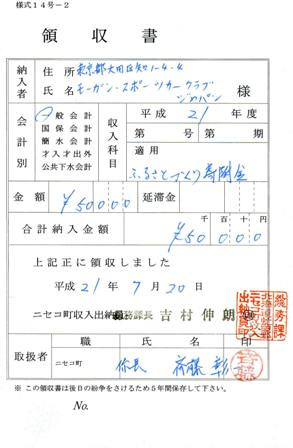 様式14号-2
領収書
納入者
住所 東京都大田区 1-4-4
氏名 モーガン・スポーツカークラブ
ジャパン 様
会計別
一般会計
国保会計
簡水会計
才入才出外
公共下水会計
収入科目
平成 21 年度
第 号 第 期
適用
ふるさとづくり寄附金
金額 ¥50000 延滞金
合計納入金額 千 百 十 円
¥50000
上記正に領収しました
平成 21年 7月 20日
ニセコ町収入出納 務課長 吉村伸朗
取扱者
職 氏名 印
ニセコ町 係長 斉藤 彰
※ この領収書は後日の紛争をさけるため5年間保存して下さい。
No.